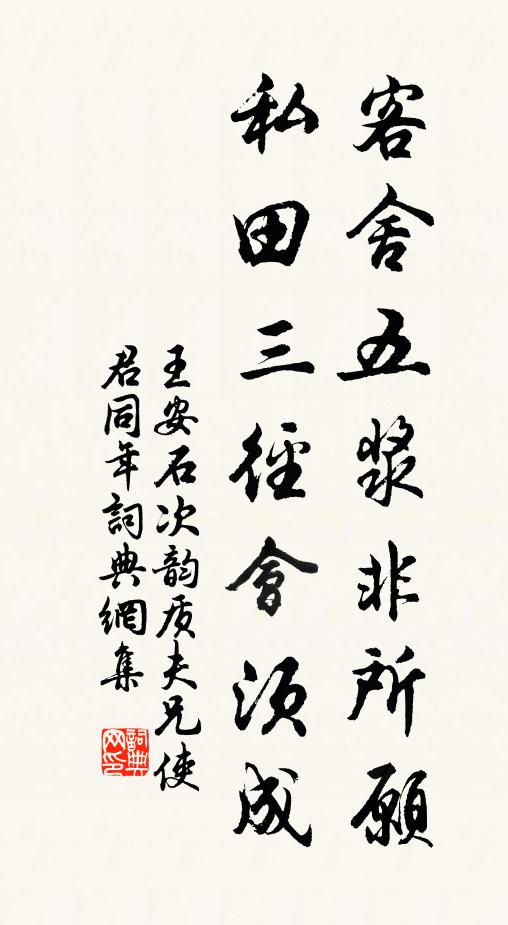 客舍五漿非所願
私田三徑會須成
王安石次韵质夫兄使
君同年詞典網集
詞典网印